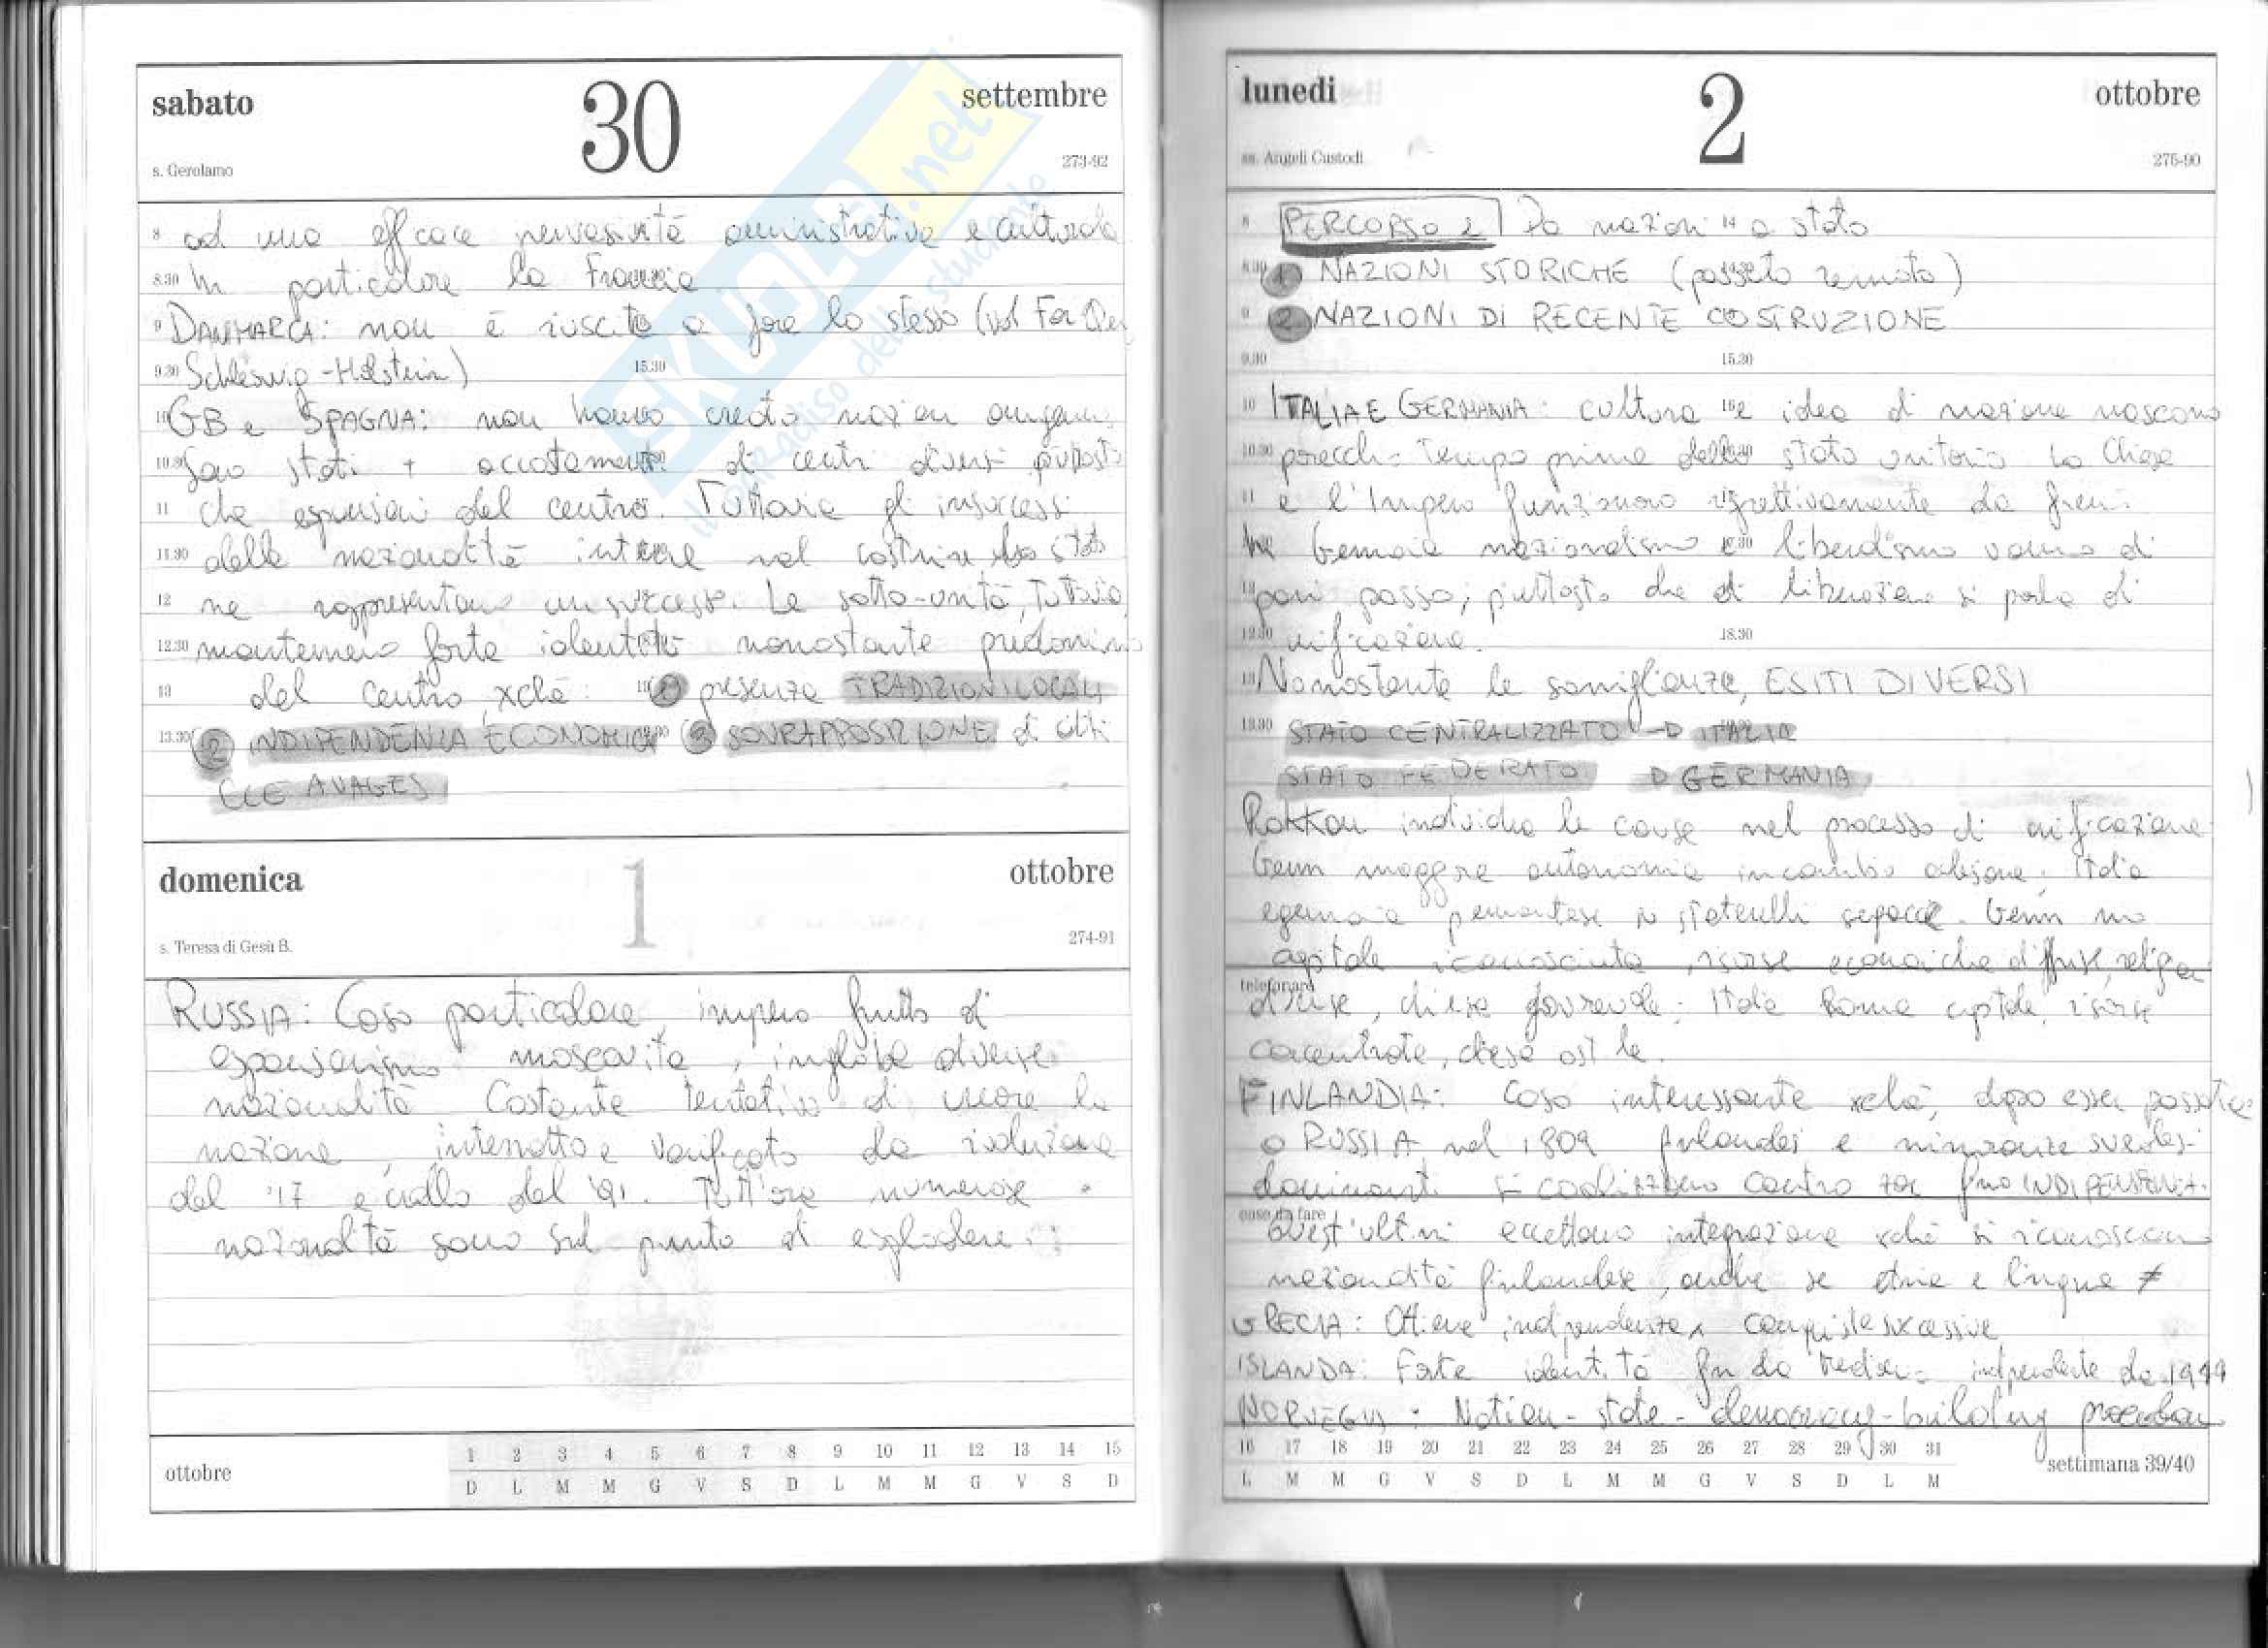 sabato 30 settembre
s. Gerolamo 273-92
8 ad una efficace pervasività amministrativa e culturale
8.30 In particolare la Francia
9 DANIMARCA: non è riuscita a fare lo stesso (vd Far Oer
9.30 Schleswig-Holstein) 15.30
10 GB e SPAGNA: non hanno creato nazioni omogenee,
10.30 sono stati + accostamenti di centri diversi piuttosto
11 che espansioni del centro. Tuttavia gli insuccessi
11.30 delle nazionalità interne nel costruire loro stato
12 ne rappresentano un successo. Le sotto-unità, tuttavia,
12.30 mantennero forte identità nonostante predominio
13 del centro xchè: 1 presenza TRADIZIONI LOCALI
13.30 2 INDIPENDENZA ECONOMICA 3 SOVRAPPOSIZIONE di altri
CLEAVAGES
domenica 1 ottobre
s. Teresa di Gesù B. 274-91
RUSSIA: Caso particolare, impero frutto di
espansionismo moscovita, ingloba diverse
nazionalità. Costante tentativo di creare la
nazione, interrotto e vanificato da rivoluzione
del '17 e crollo del '91. Tutt'ora numerose
nazionalità sono sul punto di esplodere.
ottobre 1 2 3 4 5 6 7 8 9 10 11 12 13 14 15
D L M M G V S D L M M G V S D
SKUOLA.net
il paradiso dello studente
lunedì 2 ottobre
ss. Angeli Custodi 275-90
8 PERCORSO 2 Da nazioni 14 a stato
8.30 1 NAZIONI STORICHE (passato remoto)
9 2 NAZIONI DI RECENTE COSTRUZIONE
9.30 15.30
10 ITALIA E GERMANIA: cultura 16 e idea di nazione nascono
10.30 parecchio tempo prima dello stato unitario. La Chiesa
11 e l'Impero funzionano rispettivamente da freni.
In Germania nazionalismo e liberalismo vanno di
pari passo; piuttosto che di liberazione si parla di
12.30 unificazione. 18.30
Nonostante le somiglianze, ESITI DIVERSI
13.30 STATO CENTRALIZZATO → ITALIA
STATO FEDERATO → GERMANIA
Rokkan individua le cause nel processo di unificazione
Germ maggiore autonomia in cambio adesione; Italia
egemonia piemontese su staterelli Germ no
capitale riconosciuta, risorse economiche diffuse, religioni
telefonare
diverse, chiesa favorevole; Italia Roma capitale, risorse
concentrate, chiesa ostile.
FINLANDIA: Caso interessante xchè, dopo esser passata
a RUSSIA nel 1809 finlandesi e minoranze svedesi
dominanti si coalizzano contro zar fino INDIPENDENZA.
cose da fare
Quest'ultimi accettano integrazione xchè si riconoscono
nazionalità finlandese, anche se etnia e lingua ≠
GRECIA: Ottiene indipendenza conquiste successive
ISLANDA: Forte identità fin da indipendente da 1944
NORVEGIA: Nation-state-democracy-building procedono
16 17 18 19 20 21 22 23 24 25 26 27 28 29 30 31
L M M G V S D L M M G V S D L M
settimana 39/40